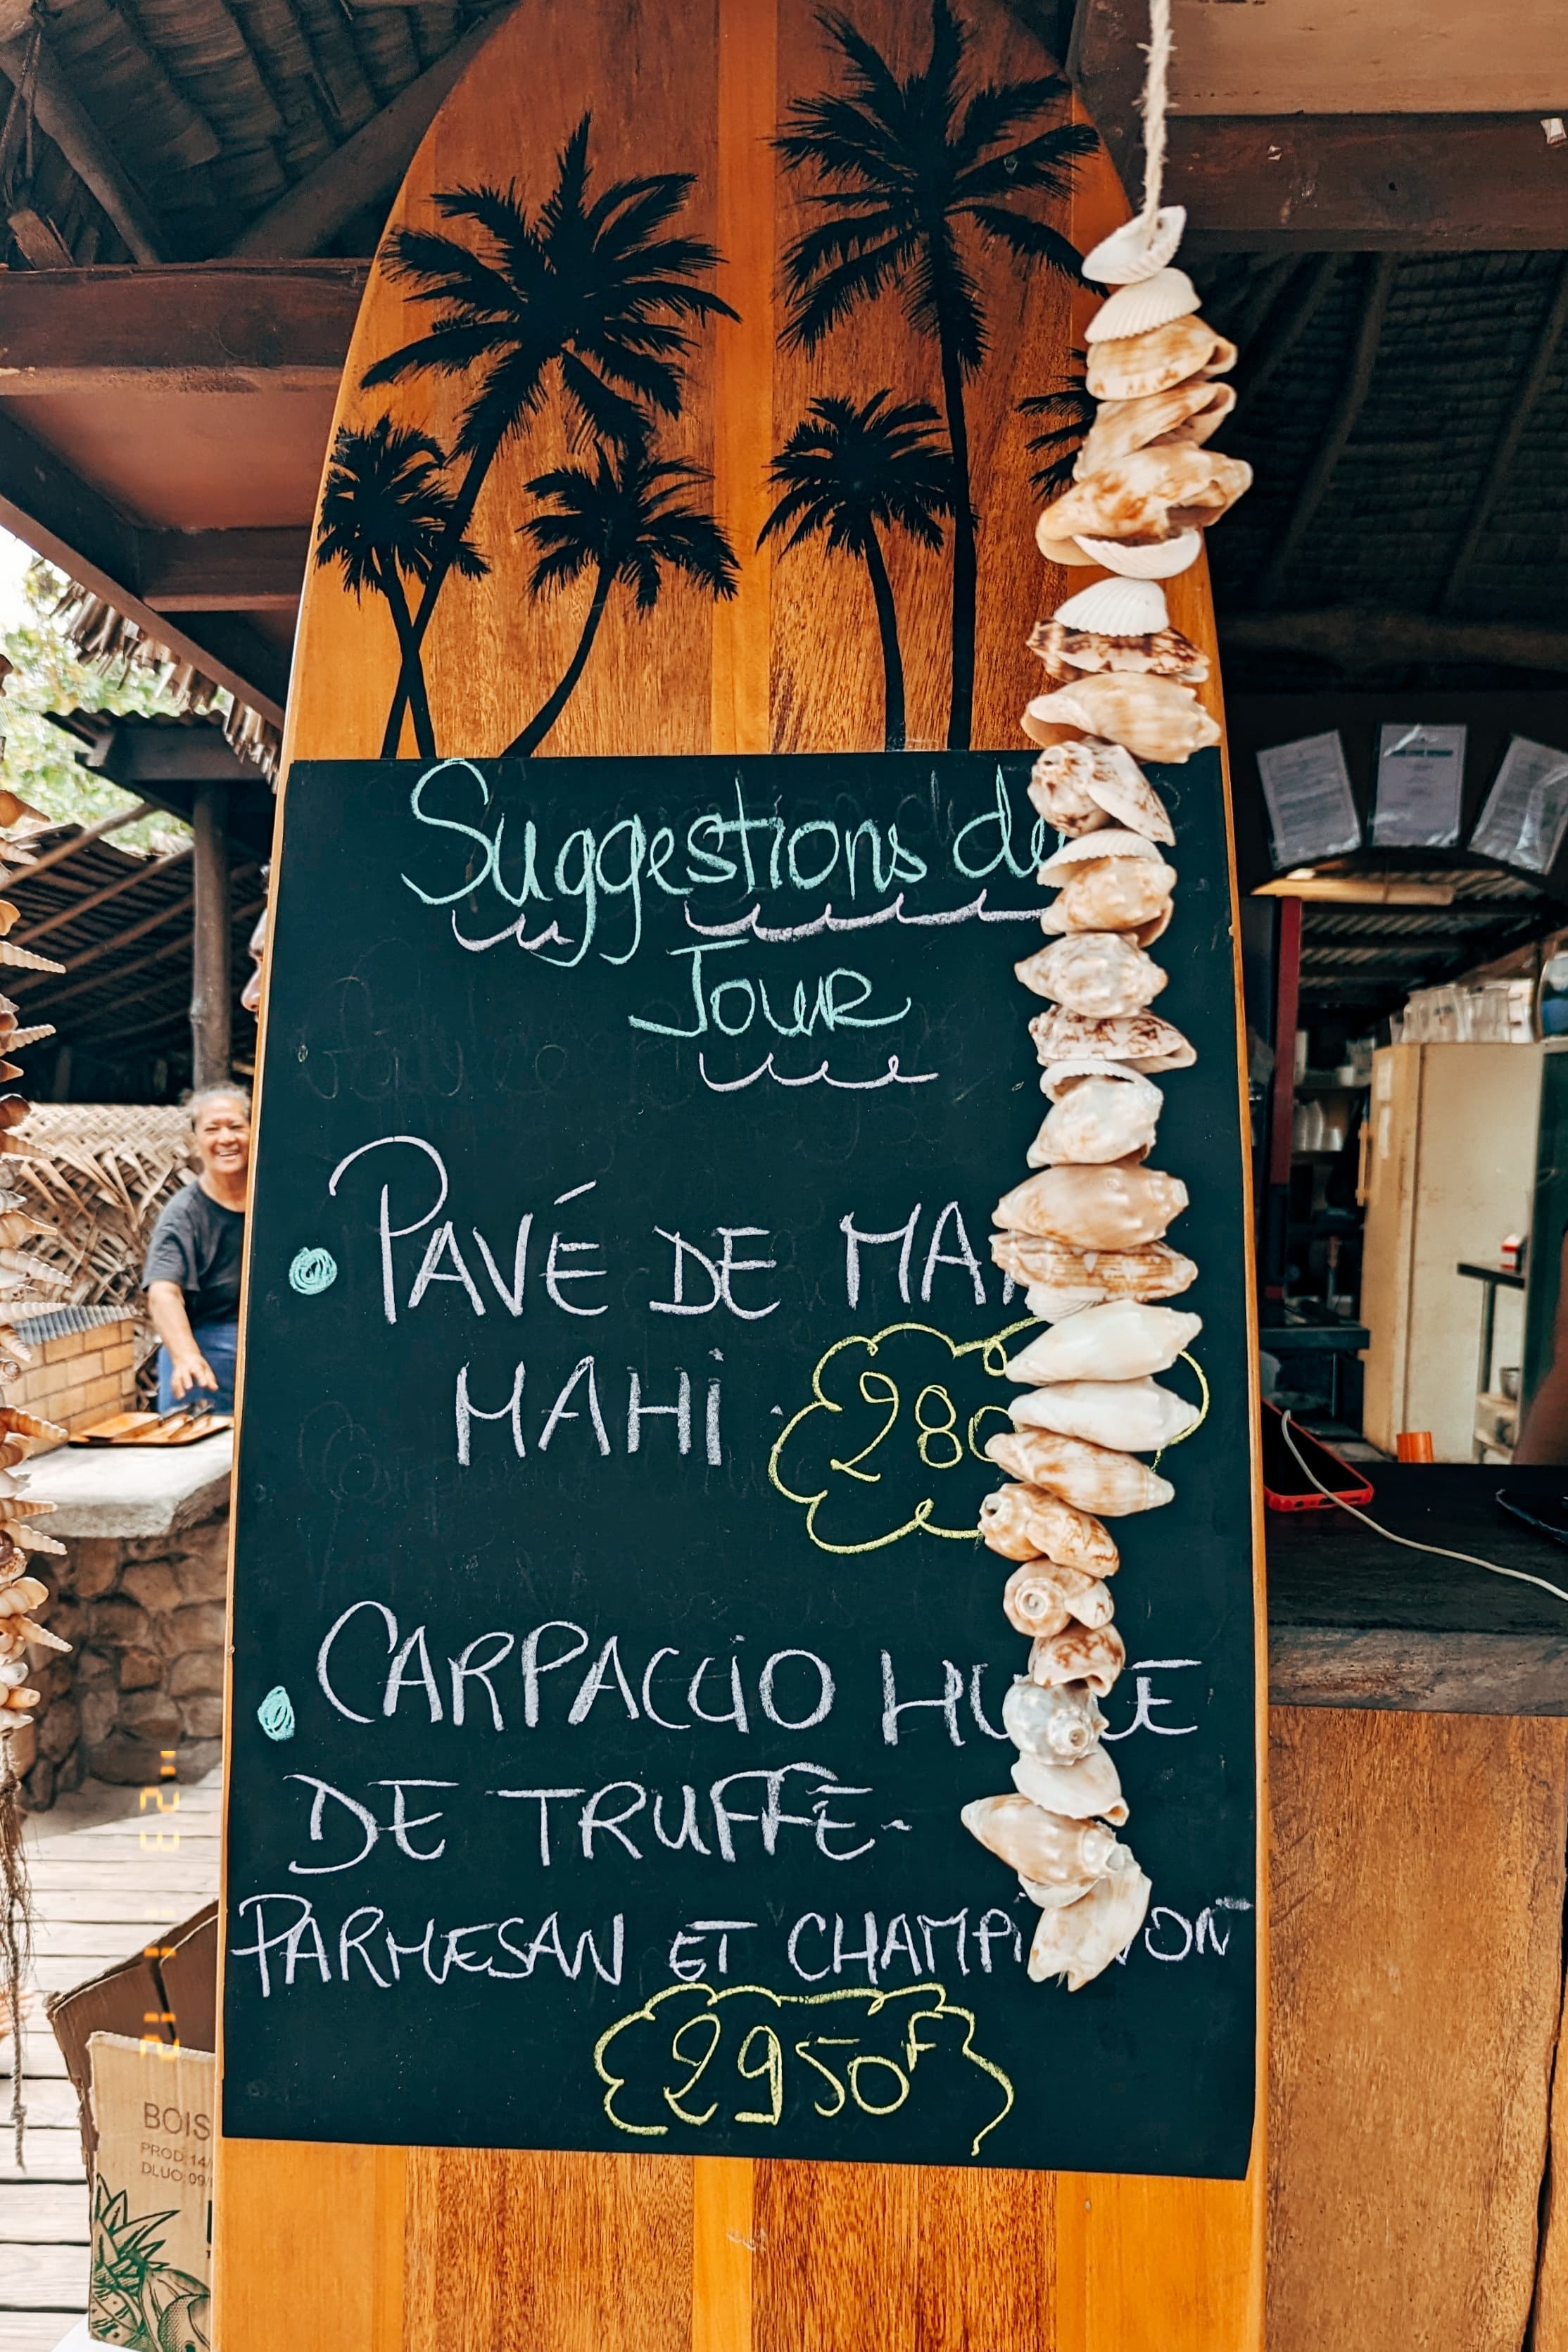 Suggestions du
Jour
PAVÉ DE MAHI
MAHI
CARPACCIO HUILE
DE TRUFFE-
PARMESAN ET CHAMPIGNON
2950F
BOIS
PROD 14/
DLUO 09/
'23 11 12